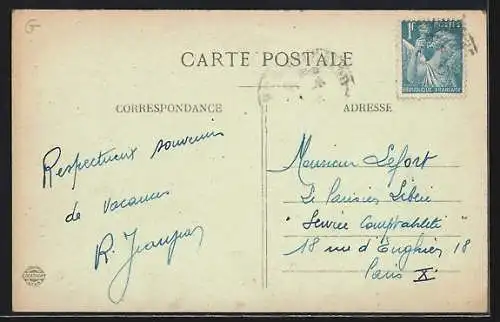 G
CARTE POSTALE
CORRESPONDANCE
ADRESSE
1F
POSTES
RÉPUBLIQUE FRANÇAISE
Respectueux souvenir
de vacances
R.
Monsieur Lefort
Le Parisien Libéré
"Service Comptabilité"
18 rue d'Enghien 18
Paris X.